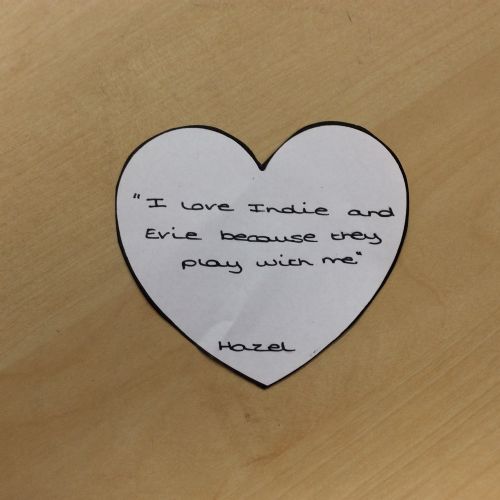 "I love Indie and
Evie because they
play with me"
Hazel